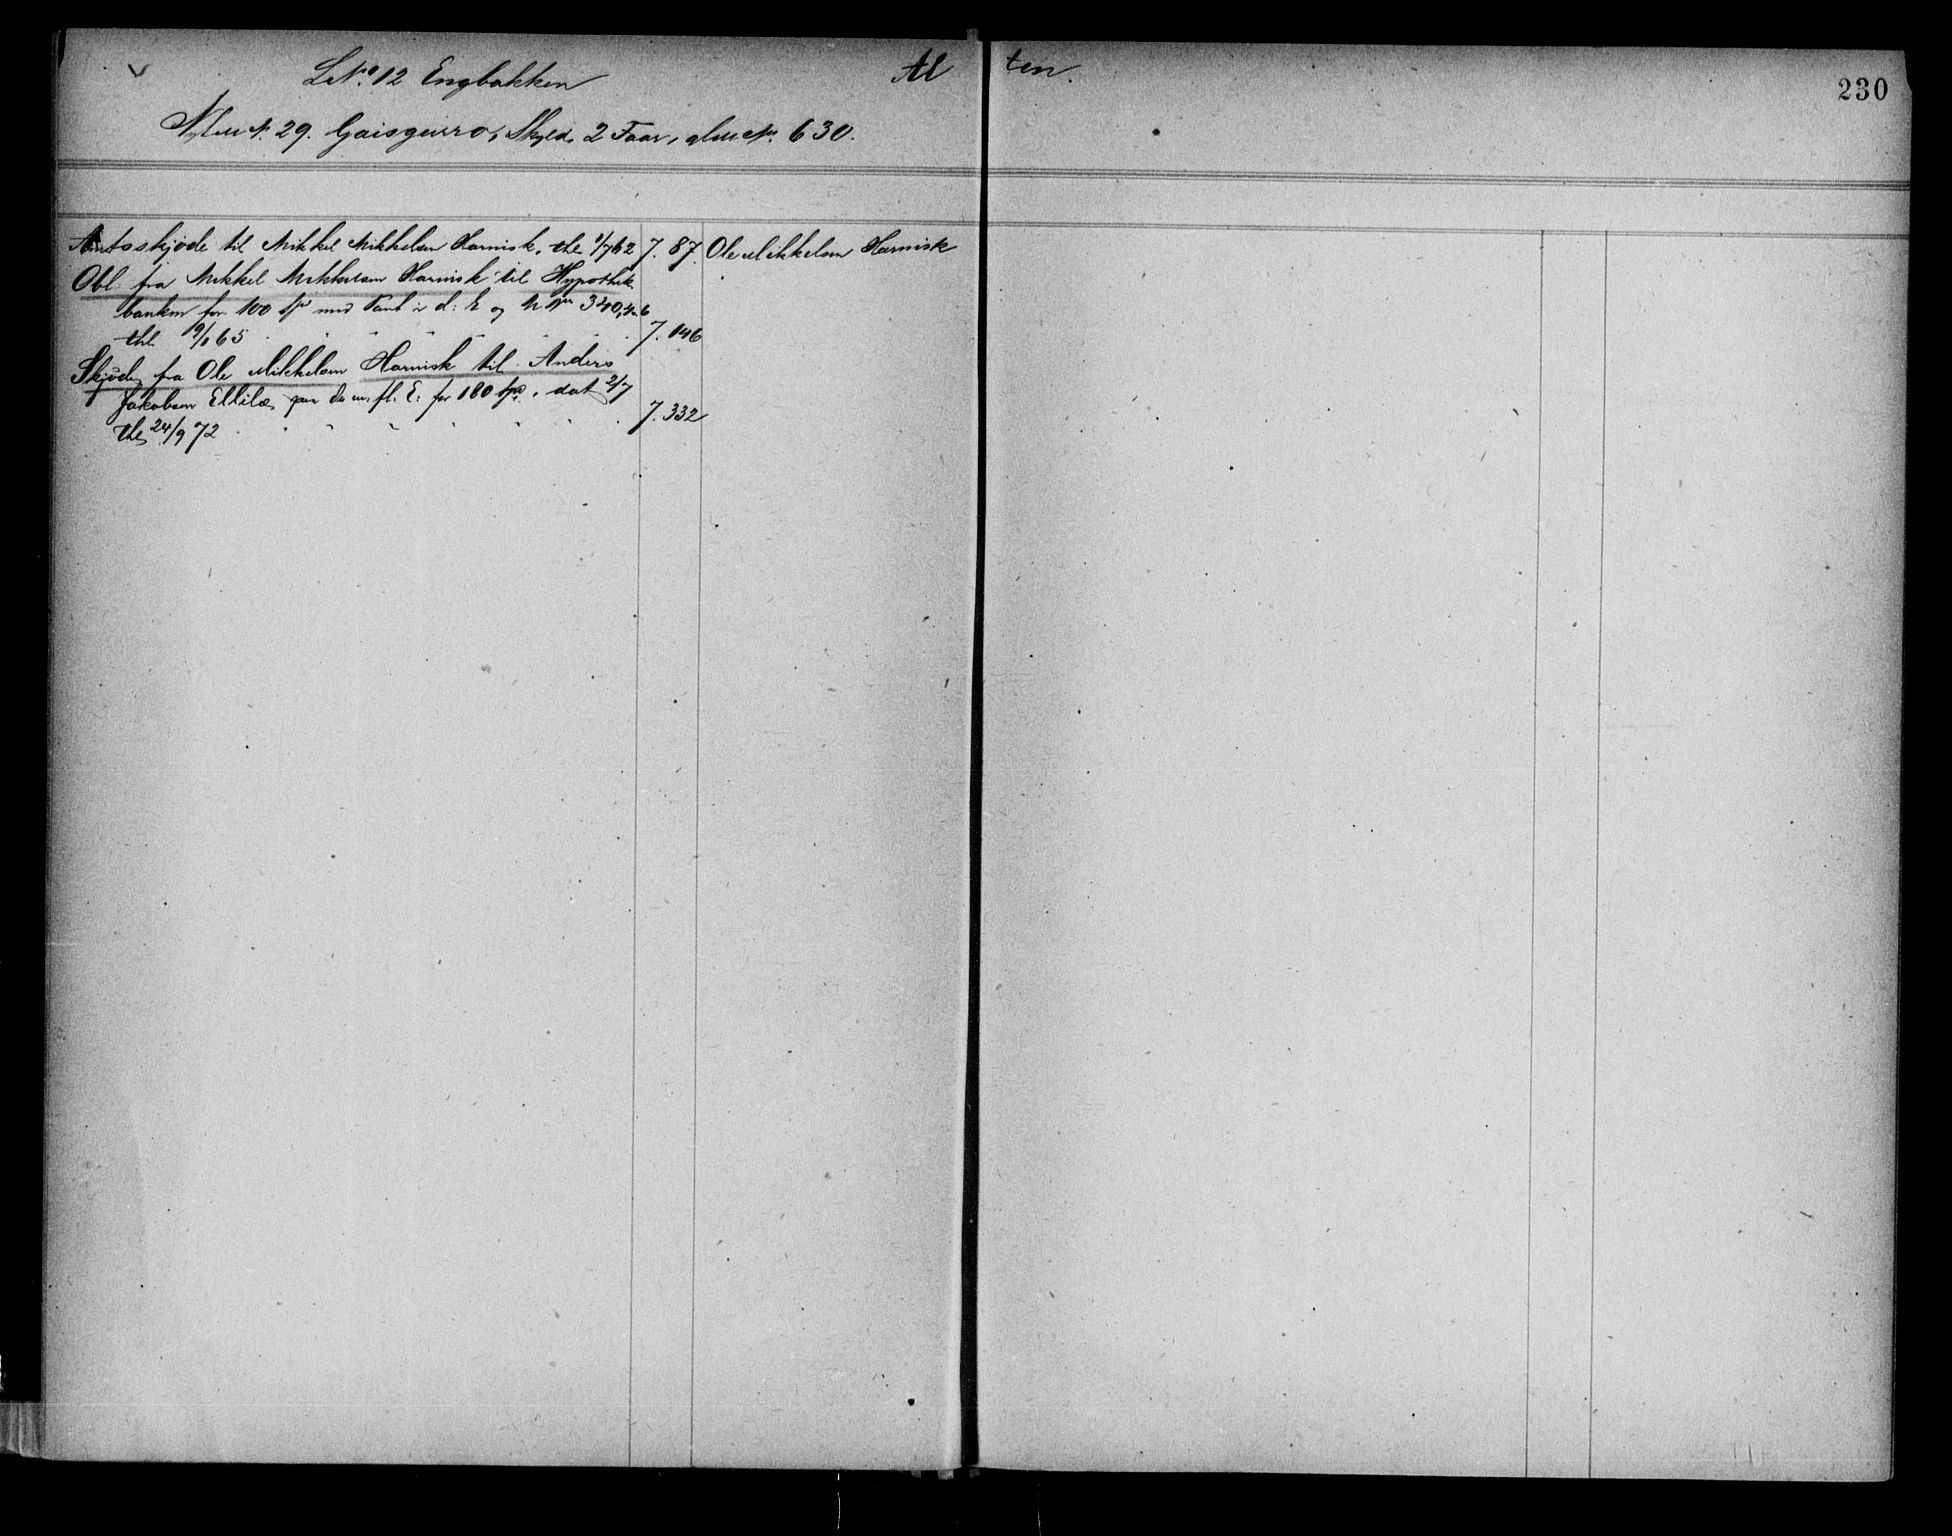 L.N.º 12 Engbakken
Al ten.
230
N. 29. Gaisgeurro, Skyld, 2 Faar, 630.
Amtsskjøde til Mikkel Mikkelsen Harnisk, thl. 1/7 62 7. 87. Ole Mikkelsen Harnisk
Obl. fra Mikkel Mikkelsen Harnisk til Hypothek
banken for 100 Sp med Pant i d: E og 340,
thl. 9/1 65 7. 146
Skjøde, fra Ole Mikkelsen Harnisk til Anders
Jakobsen Ellilæ, paa m. fl. E: for 180 Spd, dat 2/7
thl, 24/9 72 7. 332